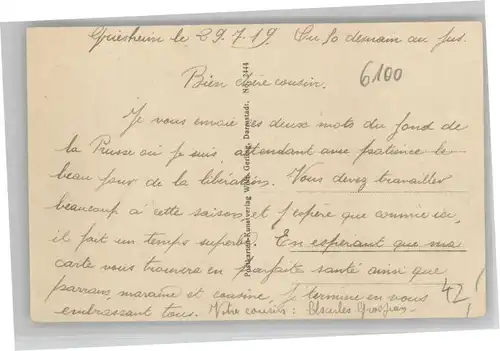 Griesheim le 29.7.19. Ou 50 demain au jus.
6100
Bien chère cousin.
Je vous envoie ces deux mots du fond de
la Prusse où je suis, attendant avec patience le
beau jour de la libération. Vous devez travailler
beaucoup à cette saison, et j'espère que comme ici,
il fait un temps superbe. En espérant que ma
carte vous trouvera en parfaite santé ainsi que
parrain, maraine et cousine. Je termine en vous
embrassant tous. Votre cousin:
42!
Postkarten-Kunstverlag Wilh. Gerling, Darmstadt. No. 2444